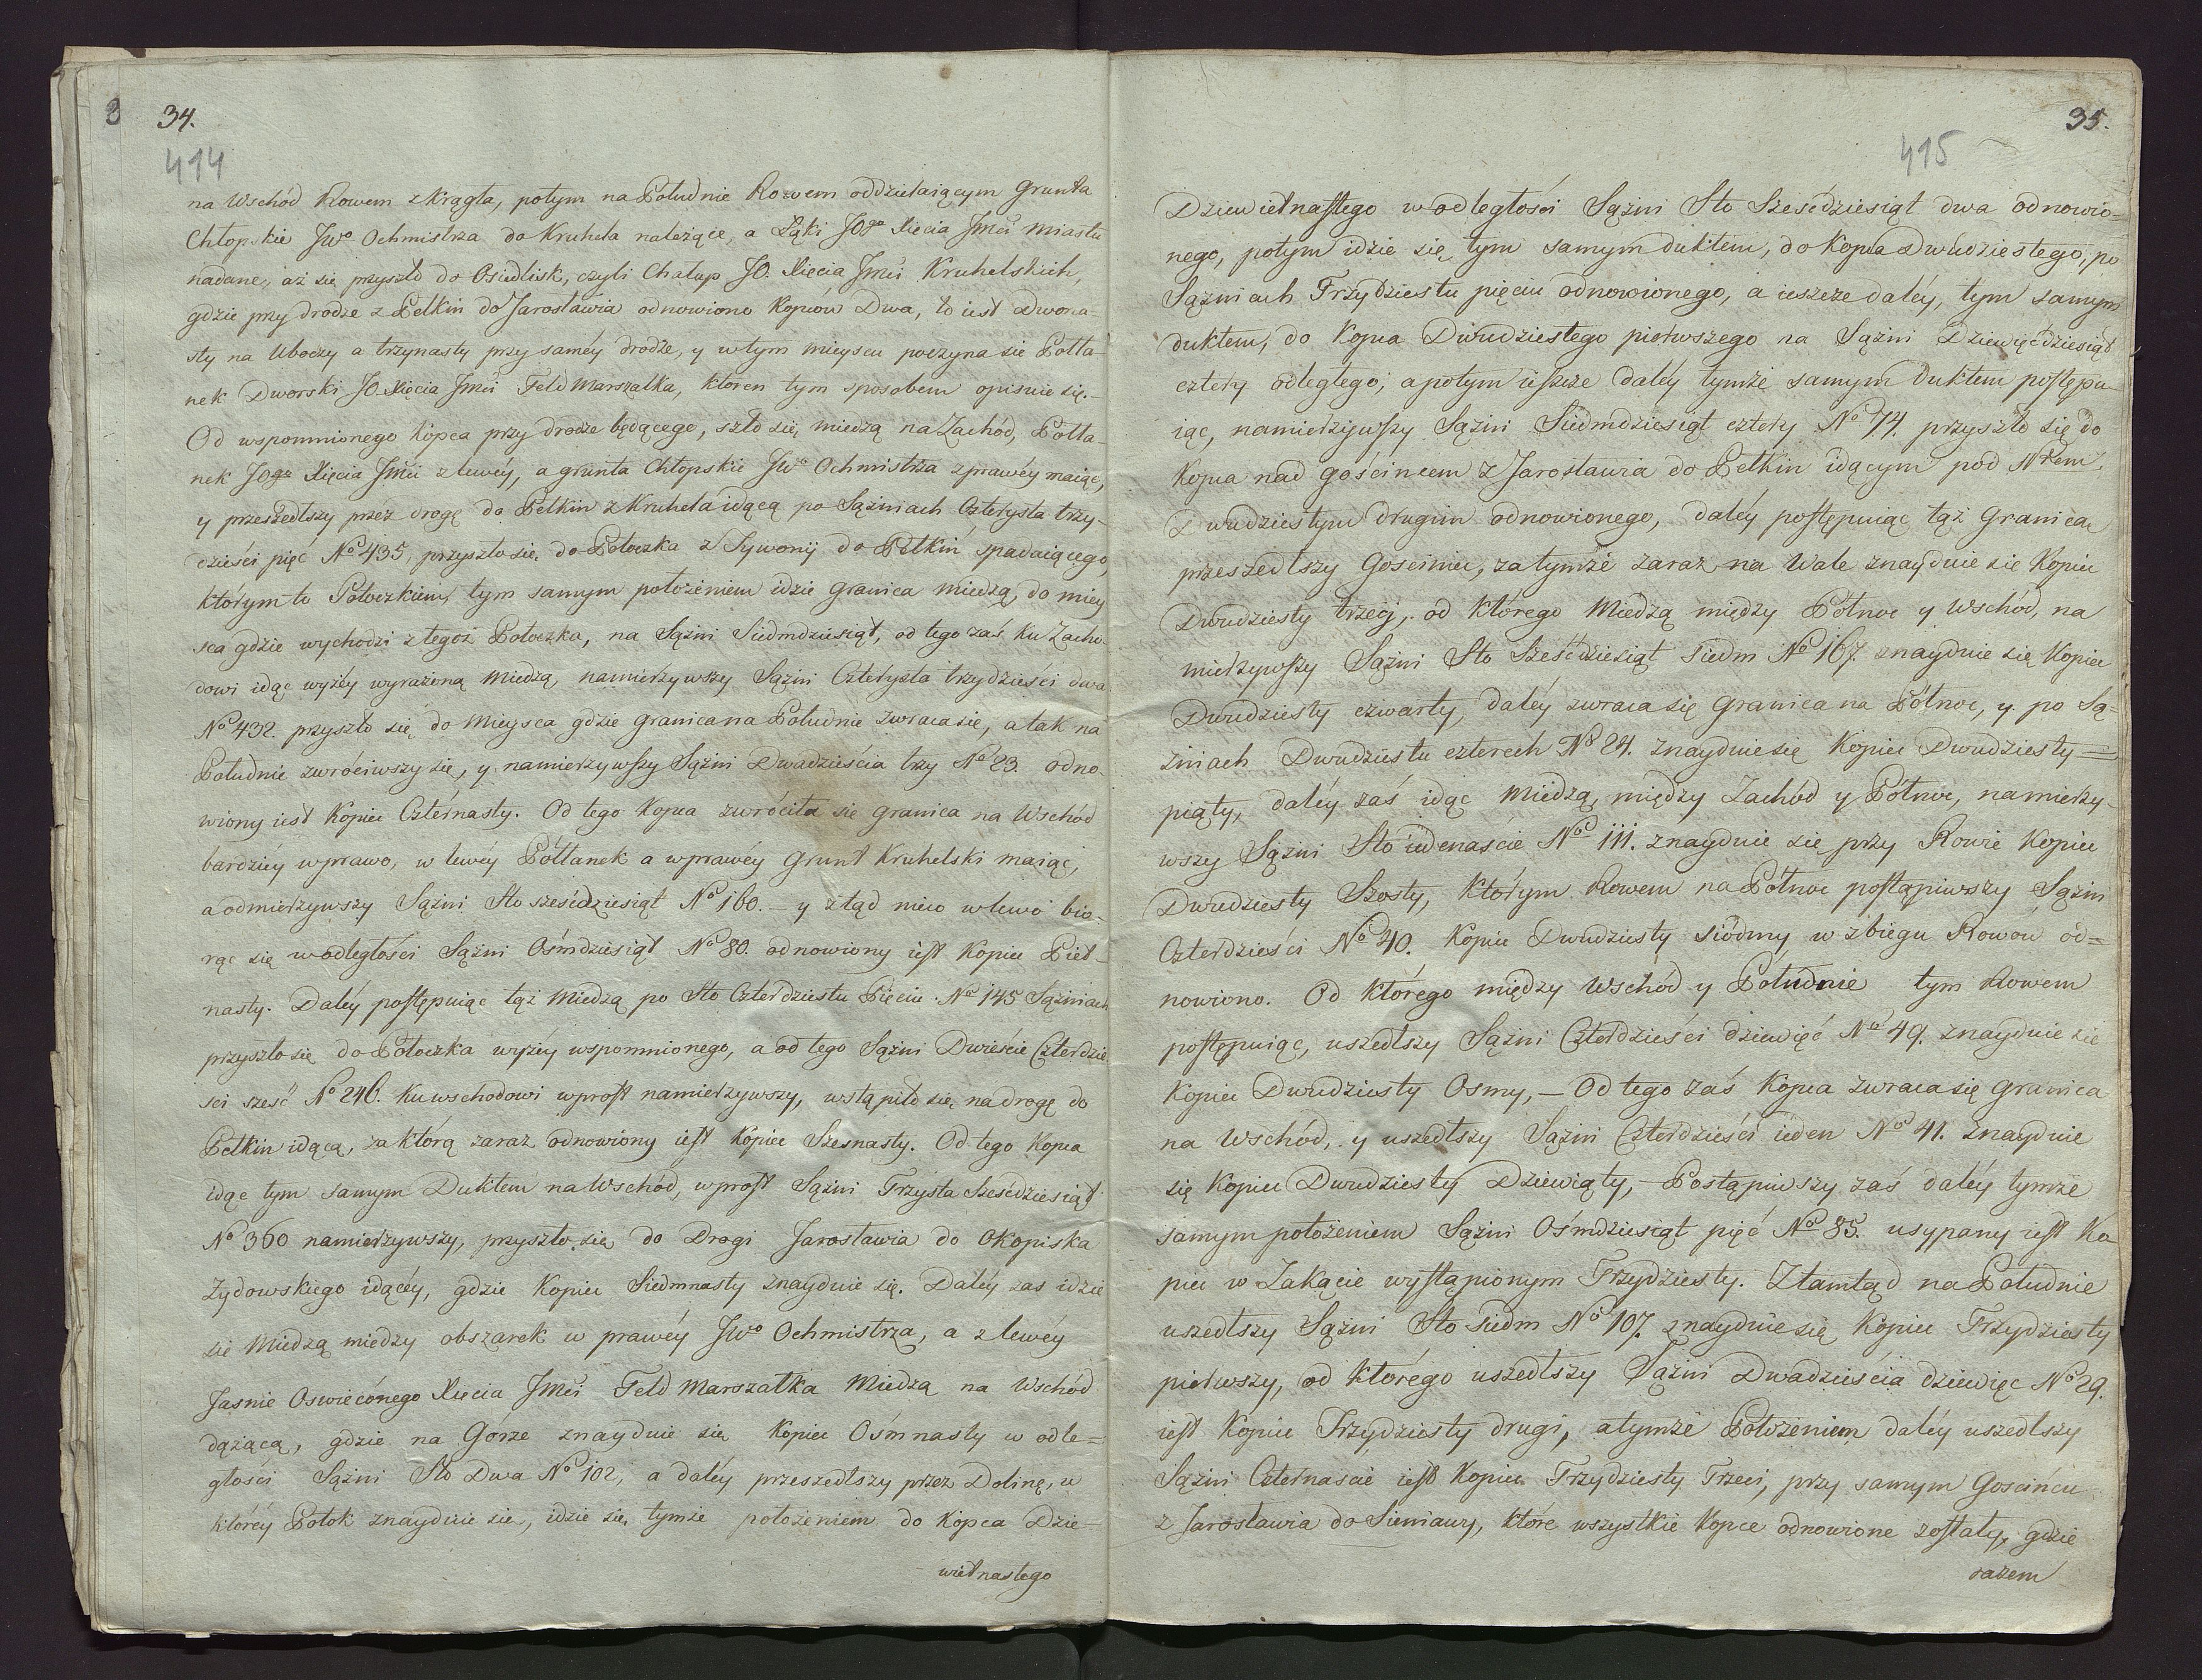 3 34.
414
na Wschód Rowem z Krągła, potym na Południe Rowem oddzielaiącym Grunta
Chłopskie JWo Ochmistrza do Kruhela należące, a Łąki JOgo Xięcia Jmći miastu
nadane, aż się przyszło do Osiedlisk, czyli Chałup JO. Xięcia Jmći Kruhelskich,
gdzie przy drodze z Pełkin do Jarosławia odnowiono Kopców Dwa, to iest Dwona-
sty na Uboczy a trzynasty przy saméy drodze, y wtym mieyscu poczyna się Połła-
nek Dworski JO Xięcia Jmći Feld Marszałka, ktoren tym sposobem opisuie się.-
Od wspomnionego Kopca przy drodze będącego, szło się miedzą na Zachód, Połła-
nek JOgo Xięcia Jmći z lewéy, a grunta Chłopskie JWo Ochmistrza z prawéy maiąc,
y przeszedłszy przez drogę do Pełkin z Kruhela idącą po Sążniach Czterysta trzy-
dzieści pięc No 435, przyszło się do Potoczka z Sywonij do Pełkin spadaiącego,
którym to Potoczkiem, tym samym położeniem idzie granica miedzą, do miey
sca gdzie wychodzi z tegoż Potoczka, na Sążni Siedmdziesiąt, od tego zaś ku Zacho-
dowi idąc wyżéy wyrażoną miedzą, namierzywszy Sążni Czterysta trzydzieści dwa
No 432. przyszło się do Mieysca gdzie granica na Południe zwraca się, a tak na
Południe zwróciwszy się, y namierzywszy Sążni Dwadzieścia trzy No 23. odno-
wiony iest Kopiec Czternasty. Od tego Kopca zwróciła się granica na Wschód
bardziéy wprawo, w lewéy Półłanek a wprawéy Grunt Kruhelski maiąc,
a odmierzywszy Sążni Sto sześćdziesiąt No 160. - y ztąd nieco wlewo bio-
rąc się w odległości Sążni Ośmdziesiąt No 80. odnowiony iest Kopiec Piet-
nasty. Daléy postępuiąc tąż Miedzą po Sto Czterdziestu Pięciu No 145 Sążniach
przyszło się do Potoczka wyżéy wspomnionego, a od tego Sążni Dwieście Czterdzie
sci sześć No 246. ku wschodowi wprost namierzywszy, wstąpiło się na drogę do
Pełkin idącą, za którą zaraz odnowiony iest Kopiec Szesnasty. Od tego Kopca
idąc tym samym Duktem na Wschód, wprost Sążni Trzysta Sześćdziesiąt
No 360 namierzywszy, przyszło się do Drogi Jarosławia do Okopiska
Zydowskiego idącéy, gdzie Kopiec Siedmnasty znayduie się. Daléy zas idzie
się Miedzą miedzy obszarek w prawéy JWo Ochmistrza, a z lewéy
Jasnie Oswieconego Xięcia Jmći Feld Marszałka Miedzą na Wschód
dążącą, gdzie na Górze znayduie się Kopiec Ośmnasty w odle=
głości Sążni Sto Dwa No 102, a daléy przeszedłszy przez Dolinę, w
któréy Potok znayduie się, idzie się tymże położeniem do Kopca Dzie-
wietnastego
35.
415
Dziewietnastego w odległości Sążni Sto Sześćdziesiąt dwa odnowio=
nego, potym idzie się tym samym duktem, do Kopca Dwudziestego, po
Sążniach Trzydziestu pięciu odnowionego, a ieszcze daléy, tym samym
duktem, do Kopca Dwudziestego pierwszego na Sążni Dziewięćdziesiąt
cztery odległego, a potym ieszcze daléy tymże samym Duktem postępu-
iąc, namierzywszy Sążni Siedmdziesiąt cztery No 74. przyszło się do
Kopca nad gościncem z Jarosławia do Pełkin idącym pod Nrem.
Dwudziestym drugim odnowionego, daléy postępuiąc tąż Granicą
przeszedłszy Gosciniec, za tymże zaraz na Wale znayduie się Kopiec
Dwudziesty trzeci, od którego Miedzą między Północ y Wschód, na
mierzywszy Sążni Sto Sześćdziesiąt siedm No 167. znayduie się Kopiec
Dwudziesty czwarty, daléy zwraca się Granica na Północ, y po Są-
żniach Dwudziestu czterech No 24. znayduie się Kopiec Dwudziesty=
piąty, daléy zaś idąc Miedzą, między Zachód y Północ, namierzy-
wszy Sążni Sto iedenaście No 111. znayduie się przy Rowie Kopiec
Dwudziesty Szosty, którym Rowem na Północ postąpiwszy Sążni
Czterdzieści No 40. Kopiec Dwudziesty siódmy w zbiegu Rowów od=
nowiono. Od którego między Wschód y Południe tym Rowem
postępuiąc, uszedłszy Sążni Czterdzieści dziewięć No 49. znayduie się
Kopiec Dwudziesty Osmy, - Od tego zaś Kopca zwraca się Granica
na Wschód, y uszedłszy Sążni Czterdzieści ieden No 41. znayduie
się Kopiec Dwudziesty Dziewiąty, - Postąpiwszy zaś daléy tymże
samym położeniem Sążni Ośmdziesiąt pięć No 85. usypany iest Ko
piec w Zakącie wystąpionym Trzydziesty. Ztamtąd na Południe
uszedłszy Sążni Sto siedm No 107. znayduie się Kopiec Trzydziesty
pierwszy, od którego uszedłszy Sążni Dwadzieścia dziewięc No 29.
iest Kopiec Trzydziesty drugi, a tymże Położeniem daléy uszedłszy
Sążni Czternascie iest Kopiec Trzydziesty Trzeci, przy samym Gościńcu
z Jarosławia do Sieniawy, które wszystkie Kopce odnowione zostały, gdzie
razem